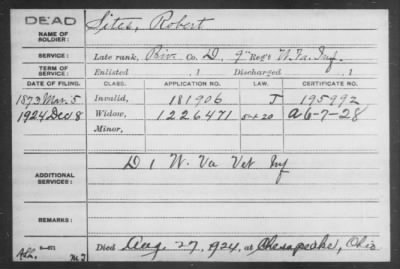 DEAD
NAME OF SOLDIER: Sites, Robert
SERVICE: Late rank, Priv. Co. D, 9" Reg't W.Va. Inf.
TERM OF SERVICE: Enlisted , 1 Discharged , 1
DATE OF FILING. CLASS. APPLICATION NO. LAW. CERTIFICATE NO.
1873 Mar. 5 Invalid, 181906 J 195992
1924 Dec 8 Widow, 1226471 A 6-7-28
Minor,
ADDITIONAL SERVICES: D 1 W. Va Vet Inf
REMARKS:
Died Aug 27, 1924, at Chesapeake, Ohio